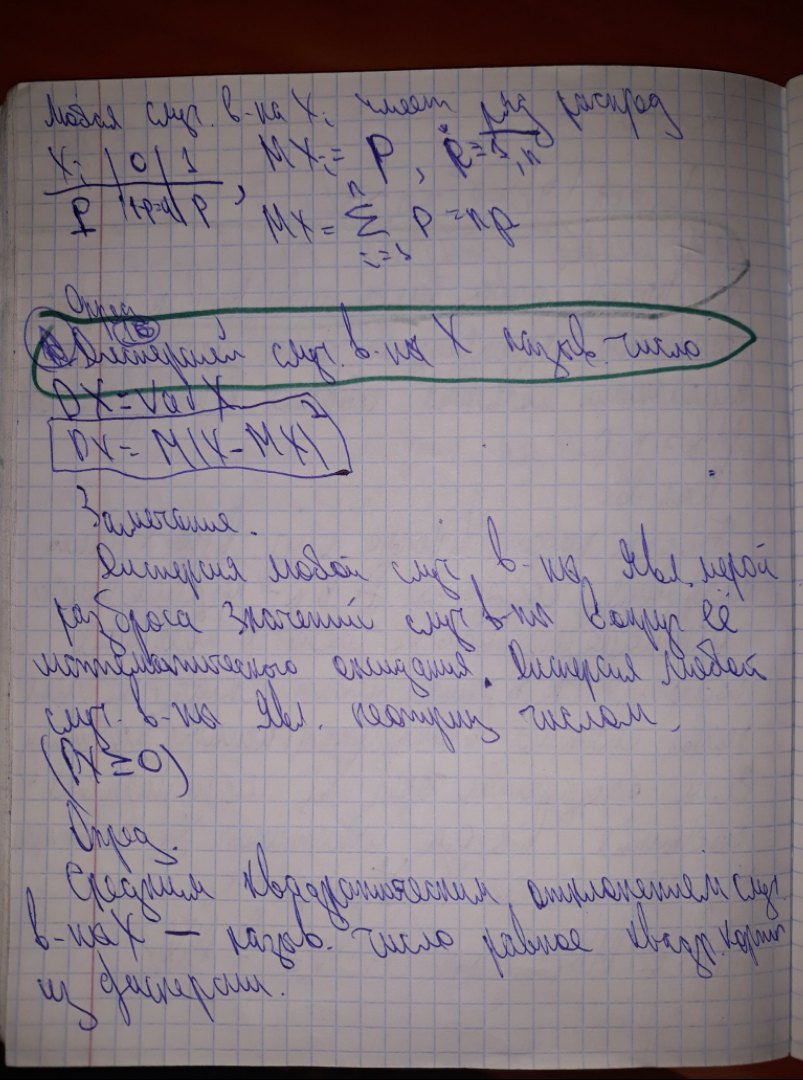 Любая случ. в-на Xᵢ имеет ряд распред
Xᵢ | 0 | 1 , MXᵢ = p,
P | 1-p=q | p MX = ∑ p = np
n
i=1
Опред
Дисперсией случ. в-ны X назыв. число
DX = Var X
DX = M(X-MX)²
Замечания.
Дисперсия любой случ. в-ны явл. мерой
разброса значений случ в-ны вокруг её
математического ожидания. Дисперсия любой
случ. в-ны явл. неотриц числом.
(DX ≥ 0)
Опред.
Средним квадратическим отклонением случ.
в-ны X — назыв. число равное квадр. корню
из дисперсии.